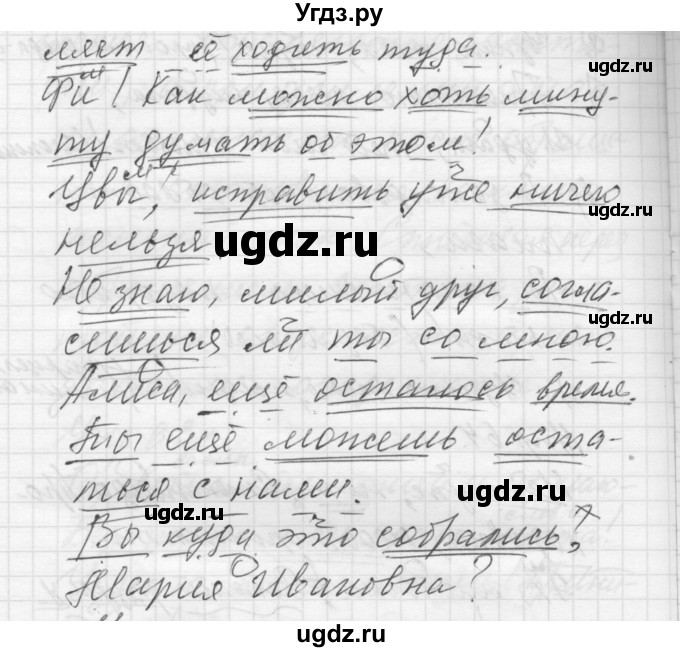 Угдз.ру
ляет её ходить туда.
Фи! Как можно хоть мину-
ту думать об этом!
Увы, исправить уже ничего
нельзя
Не знаю, милый друг, согла-
сишься ли ты со мною.
Алиса, ещё осталось время.
Ты ещё можешь оста-
ться с нами.
Вы куда это собрались,
Мария Ивановна?
ugdz.ru
ugdz.ru
ugdz.ru
ugdz.ru
ugdz.ru
ugdz.ru
ugdz.ru
ugdz.ru